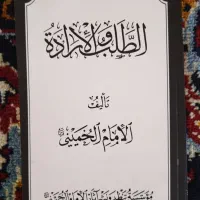 الطلب والإرادة
تأليف
الإمام الخميني
مؤسسة تنظيم ونشر آثار الإمام الخميني